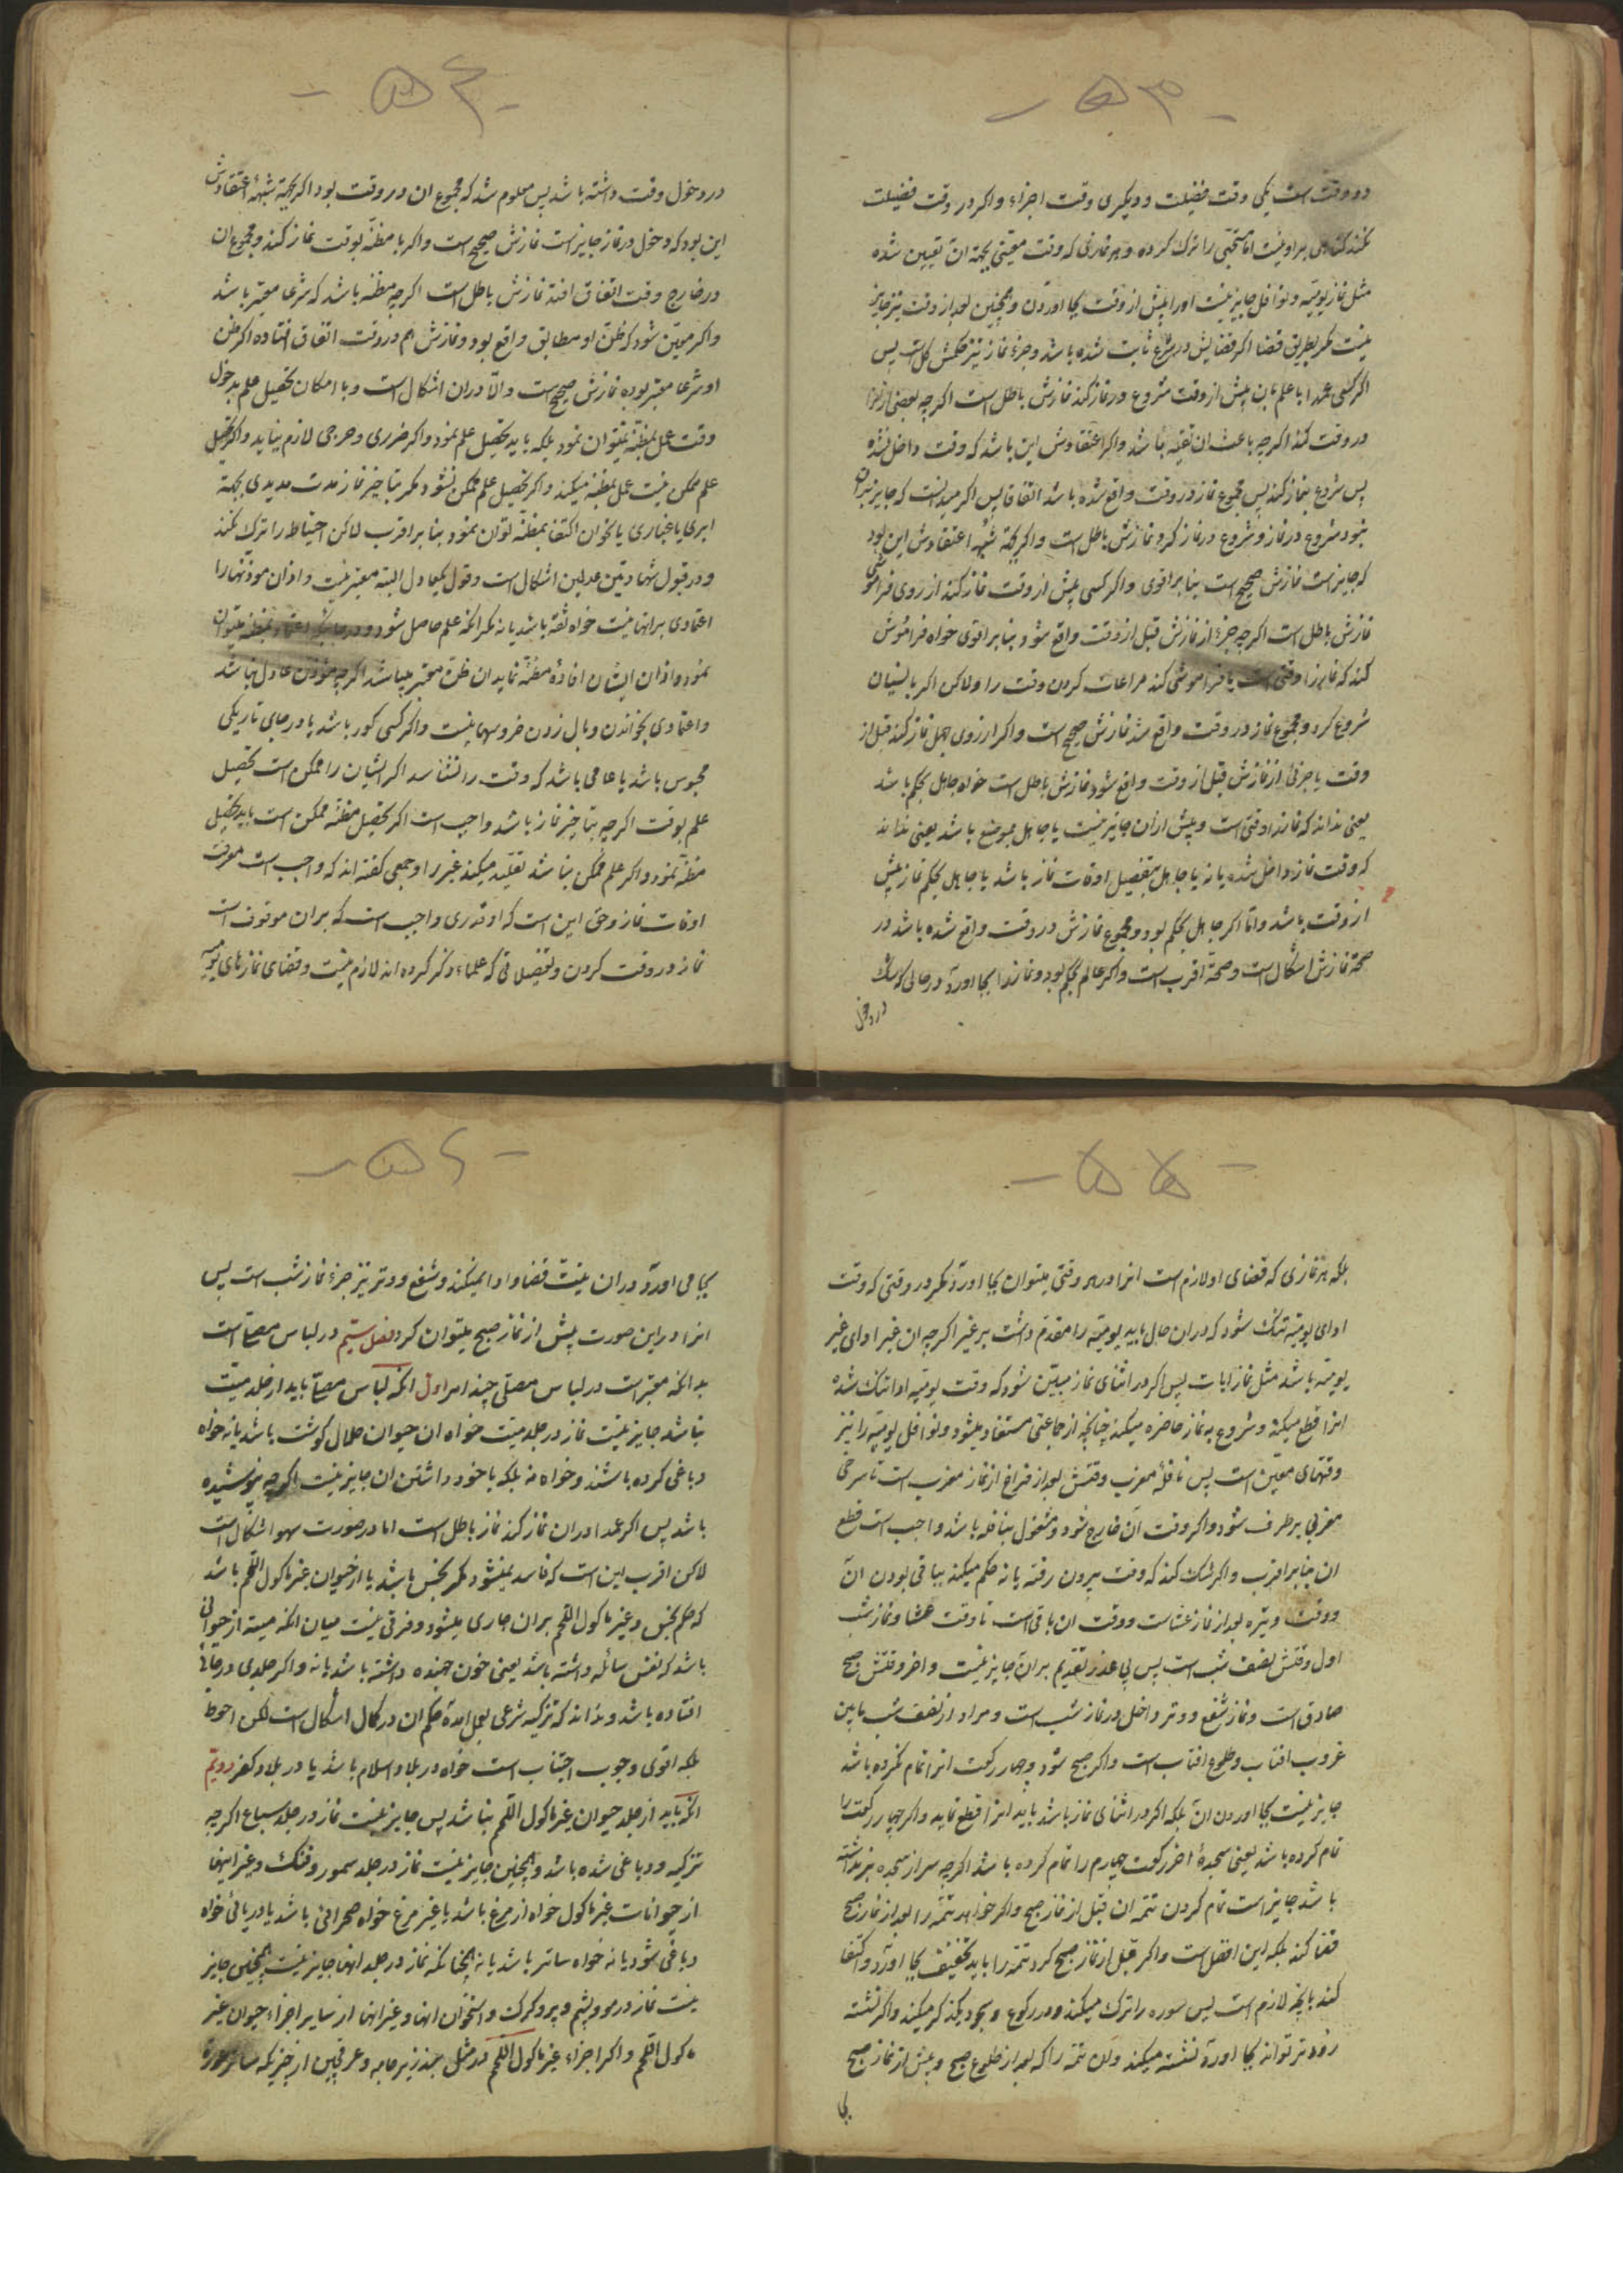 - ۵۳ -
دو وقت است یکی وقت فضیلت و دیگری وقت اجزاء و اکر در وقت فضیلت
نکند کناهی بر او نیست اما مستحبی را ترک کرده و هر نمازی که وقت معینی بجهة ان تعیین شده
مثل نماز یومیه و نوافل جایز نیست اورا پیش از وقت بجا اوردن و همچنین بعد از وقت نیز جایز
نیست مکر بطریق قضا اکر قضایش در شرع ثابت شده باشد و جزء نماز نیز حکمش کل است پس
اکر کسی عمدا با علم بان پیش از وقت شروع در نماز کند نمازش باطل است اکر چه بعضی از انرا
در وقت کند اکر چه باعث ان تقیه باشد و اکر اعتقادش این باشد که وقت داخل نشده
پس شروع بنماز کند پس مجموع نماز در وقت واقع شده باشد اتفاقا پس اکر میدانست که جایز نبود ان
بنود شروع در نماز و شروع در نماز کرد نمازش باطل است و اکر بجهة شبهه اعتقادش این بود
که جایز است نمازش صحیح است بنا بر اقوی و اکر کسی پیش از وقت نماز کند از روی فراموشی
نمازش باطل است اکر چه جزء از نمازش قبل از وقت واقع شود بنا بر اقوی خواه فراموش
کند که نماز را وقتی است یا فراموشی کند مراعات کردن وقت را ولاکن اکر با نسیان
شروع کرد و مجموع نماز در وقت واقع شد نمازش صحیح است و اکر از روی جهل نماز کند قبل از
وقت یا جزئی از نمازش قبل از وقت واقع شود نمازش باطل است خواه جاهل بحکم باشد
یعنی نداند که نماز را وقتی است و پیش از ان جایز نیست یا جاهل بموضع باشد یعنی نداند
که وقت نماز داخل شده یا نه یا جاهل بتفصیل اوقات نماز باشد یا جاهل بحکم نماز پیش
از وقت باشد و اما اکر جاهل بحکم بود و مجموع نمازش در وقت واقع شده باشد در
صحة نمازش اشکال است و صحة اقرب است و اکر عالم بحکم بود و نماز را بجا اورد در حالی که شک
در دخول
- ۵۴ -
در دخول وقت داشته باشد پس معلوم شد که مجموع ان در وقت بود اکر بجهة شبهه اعتقادش
این بود که دخول در نماز جایز است نمازش صحیح است و اکر با مظنه بوقت نماز کند و مجموع ان
در خارج وقت اتفاق افتد نمازش باطل است اکر چه مظنه باشد که شرعا معتبر باشد
و اکر مبین شود که ظن او مطابق واقع بود و نمازش هم در وقت اتفاق افتاده اکر ظن
او شرعا معتبر بوده نمازش صحیح است و الا در ان اشکال است و با امکان تحصیل علم بدخول
وقت عمل بمظنه نمیتوان نمود بلکه باید تحصیل علم نمود و اکر ضرری و حرجی لازم نیاید و اکر تحصیل
علم ممکن نیست عمل بمظنه میکند و اکر تحصیل علم ممکن نشود مکر بتاخیر نماز مدت مدیدی بجهة
ابری یا غباری یا نحو ان اکتفا بمظنه توان نمود بنا بر اقرب لاکن احتیاط را ترک نکند
و در قبول شهادتین عدلین اشکال است و قول یکعادل البته معتبر نیست و اذان موذنها را
اعتمادی بر انها نیست خواه ثقه باشد یا نه مکر انکه علم حاصل شود و در جائیکه اعتماد بمظنه میتوان
نمود و اذان ایشان افادهٔ مظنه نماید ان ظن معتبر میباشد اکر چه موذن عادل نباشد
و اعتمادی بخواندن و بال زدن خروسها نیست و اکر کسی کور باشد یا در جای تاریکی
محبوس باشد یا عامی باشد که وقت را نشناسد اکر ایشان را ممکن است تحصیل
علم بوقت اکر چه بتاخیر نماز باشد واجب است اکر تحصیل مظنه ممکن است باید تحصیل
مظنه نمود و اکر علم ممکن نباشد تقلید میکند غیر را و جمعی کفته اند که واجب است معرفت
اوقات نماز و حق این است که اوقدری واجب است که بر ان موقوف است
نماز در وقت کردن و تفصیلاتی که علماء ذکر کرده اند لازم نیست و قضای نمازهای یومیه
- ۵۵ -
بلکه هر نمازی که قضای او لازم است انرا در هر وقتی میتوان بجا اورد مکر در وقتی که وقت
ادای یومیه تنک شود که در ان حال باید یومیه را مقدم داشت بر غیر اکر چه ان غیر ادای غیر
یومیه باشد مثل نماز ایات پس اکر در اثنای نماز مبین شود که وقت یومیه ادا تنک شده
انرا قطع میکند و شروع به نماز حاضره میکند چنانچه از جماعتی مستفاد میشود و نوافل یومیه را نیز
وقتهای معین است پس نافلهٔ مغرب وقتش بعد از فراغ از نماز مغرب است تا سرخی
مغربی بر طرف شود و اکر وقت ان خارج شود و مشغول بنافله باشد واجب است قطع
ان بنا بر اقرب و اکر شک کند که وقت بیرون رفته یا نه حکم میکند بباقی بودن ان
و وقت وتیره بعد از نماز عشاست و وقت ان باقی است تا وقت عشا و نماز شب
اول وقتش نصف شب است پس بی عذر تقدیم بر ان جایز نیست و اخر وقتش صبح
صادق است و نماز شفع و وتر داخل در نماز شب است و مراد از نصف شب مابین
غروب افتاب و طلوع افتاب است و اکر صبح شود و چهار رکعت انرا تمام نکرده باشد
جایز نیست بجا اوردن ان بلکه اکر در اثنای نماز باشد باید انرا قطع نماید و اکر چهار رکعت را
تمام کرده باشد یعنی سجدهٔ اخر رکعت چهارم را تمام کرده باشد اکر چه سر از سجده بر نداشته
باشد جایز است تمام کردن تتمه ان قبل از نماز صبح و اکر خواهد تتمه را بعد از نماز صبح
قضا کند بلکه این افضل است و اکر قبل از نماز صبح کرد تتمه را باید بتخفیف بجا اورد و اکتفا
کند بانچه لازم است پس سوره را ترک میکند و در رکوع و سجود بیکذکر میکند و اکر نشسته
زودتر تواند بجا اورد نشسته میکند و ان تتمه را که بعد از طلوع صبح و پیش از نماز صبح
بجا
- ۵۶ -
بجا می اورد در ان نیت قضا و ادا نمیکند و شفع و وتر نیز جزء نماز شب است پس
انرا در این صورت پیش از نماز صبح میتوان کرد فصل ستیم در لباس مصلی است
بدانکه معتبر است در لباس مصلی چند امر اول انکه لباس مصلی باید از جلد میت
نباشد جایز نیست نماز در جلد میت خواه ان حیوان حلال کوشت باشد یا نه خواه
دباغی کرده باشند و خواه نه بلکه با خود داشتن ان جایز نیست اکر چه نپوشیده
باشد پس اکر عمدا در ان نماز کند نماز باطل است اما در صورت سهو اشکال است
لاکن اقرب این است که فاسد نمیشود مکر نجس باشد یا از حیوان غیر ماکول اللحم باشد
که حکم نجس و غیر ماکول اللحم بر ان جاری میشود و فرقی نیست میان انکه میته از حیوانی
باشد که نفس سائله داشته باشد یعنی خون جهنده داشته باشد یا نه و اکر جلدی در جائی
افتاده باشد و نداند که تزکیه شرعی بعمل امده حکم ان در کمال اشکال است لکن احوط
بلکه اقوی وجوب اجتناب است خواه در بلاد اسلام باشد یا در بلاد کفر دویم
انکه باید از جلد حیوان غیر ماکول اللحم نباشد پس جایز نیست نماز در جلد سباع اکر چه
تزکیه و دباغی شده باشد و همچنین جایز نیست نماز در جلد سمور و فنک و غیر اینها
از حیوانات غیر ماکول خواه از مرغ باشد یا غیر مرغ خواه صحرائی باشد یا دریائی خواه
دباغی شود یا نه خواه ساتر باشد یا نه چنانکه نماز در جلد انها جایز نیست همچنین جایز
نیست نماز در مو و پشم و پر و کرک و استخوان انها و غیر انها از سایر اجزاء حیوان غیر
ماکول اللحم و اکر اجزاء غیر ماکول اللحم در مثل بند زیر جامه و عرقچین از چیزیکه ساتر عورة